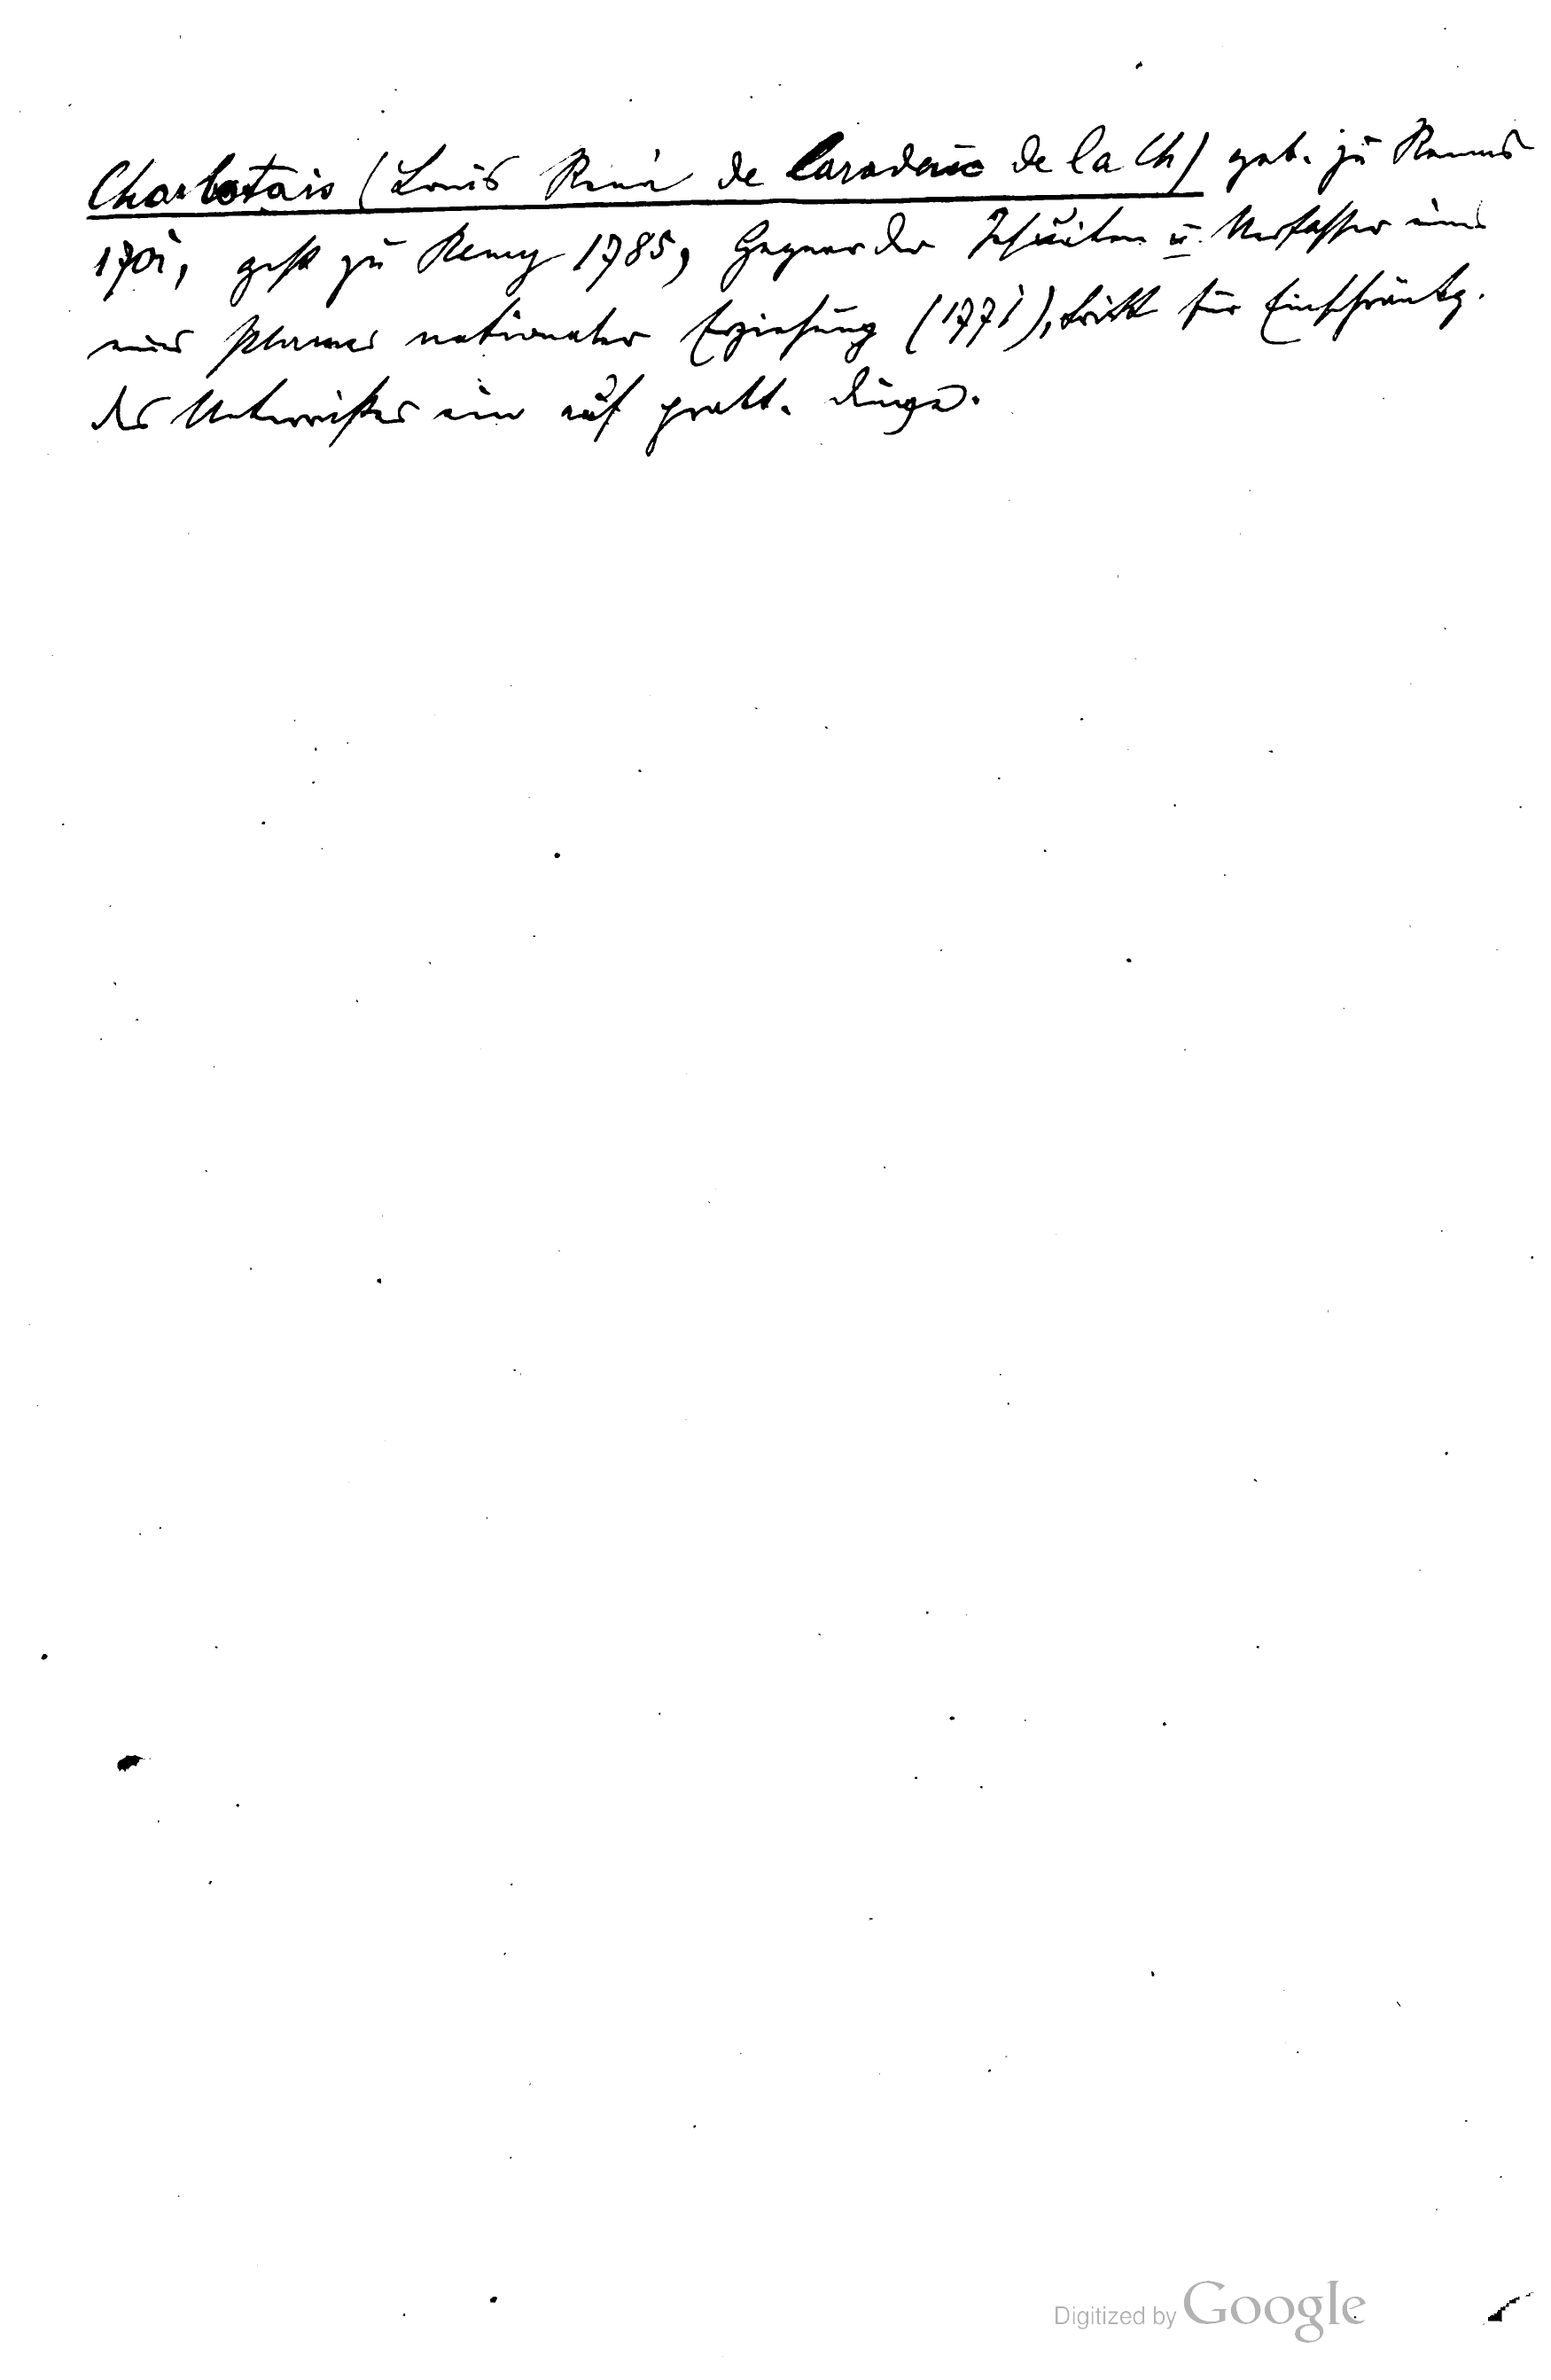 Charlotais (Louis René de Caradeuc de la Ch) geb. zu Rennes
1701, gest zu Remy 1785, Gegner der Jesuiten u. Verfasser eines
eines Planes nationaler Erziehung (1771), tritt für Einschränkg.
des Unterrichtes ein auf prakt. Dinge.
Digitized by Google